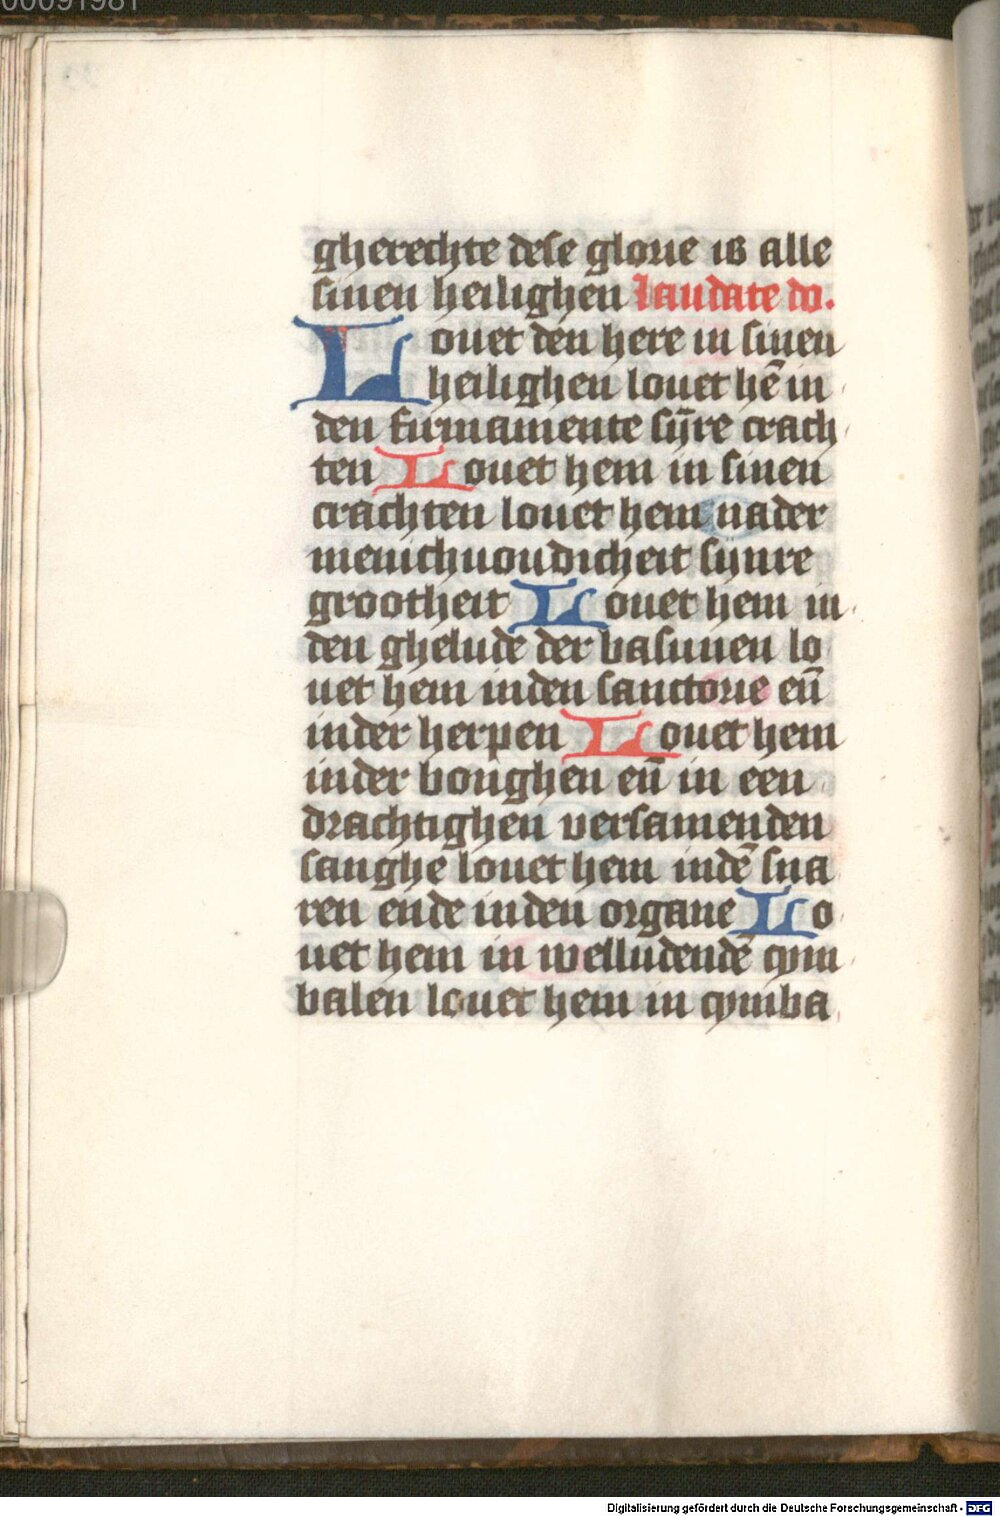 00091981
gherechte dese glorie is alle
sinen heilighen laudate do.
Louet den here in sinen
heilighen louet hē in
den firmamente sijre crach
ten Louet hem in sinen
crachten louet hem nader
menichuoudicheit sijnre
grootheit Louet hem in
den ghelude der basunen lo
uet hem inden sanctorie eñ
inder herpen Louet hem
inder bonghen eñ in een
drachtighen versamenden
sanghe louet hem indē sna
ren ende inden organe Lo
uet hem in welludendē cym
balen louet hem in cymba
Digitalisierung gefördert durch die Deutsche Forschungsgemeinschaft - DFG